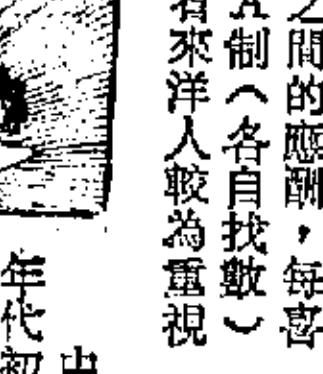 之間的應酬，每喜
A制（各自找數）
若來洋人較為重視
年代初
出